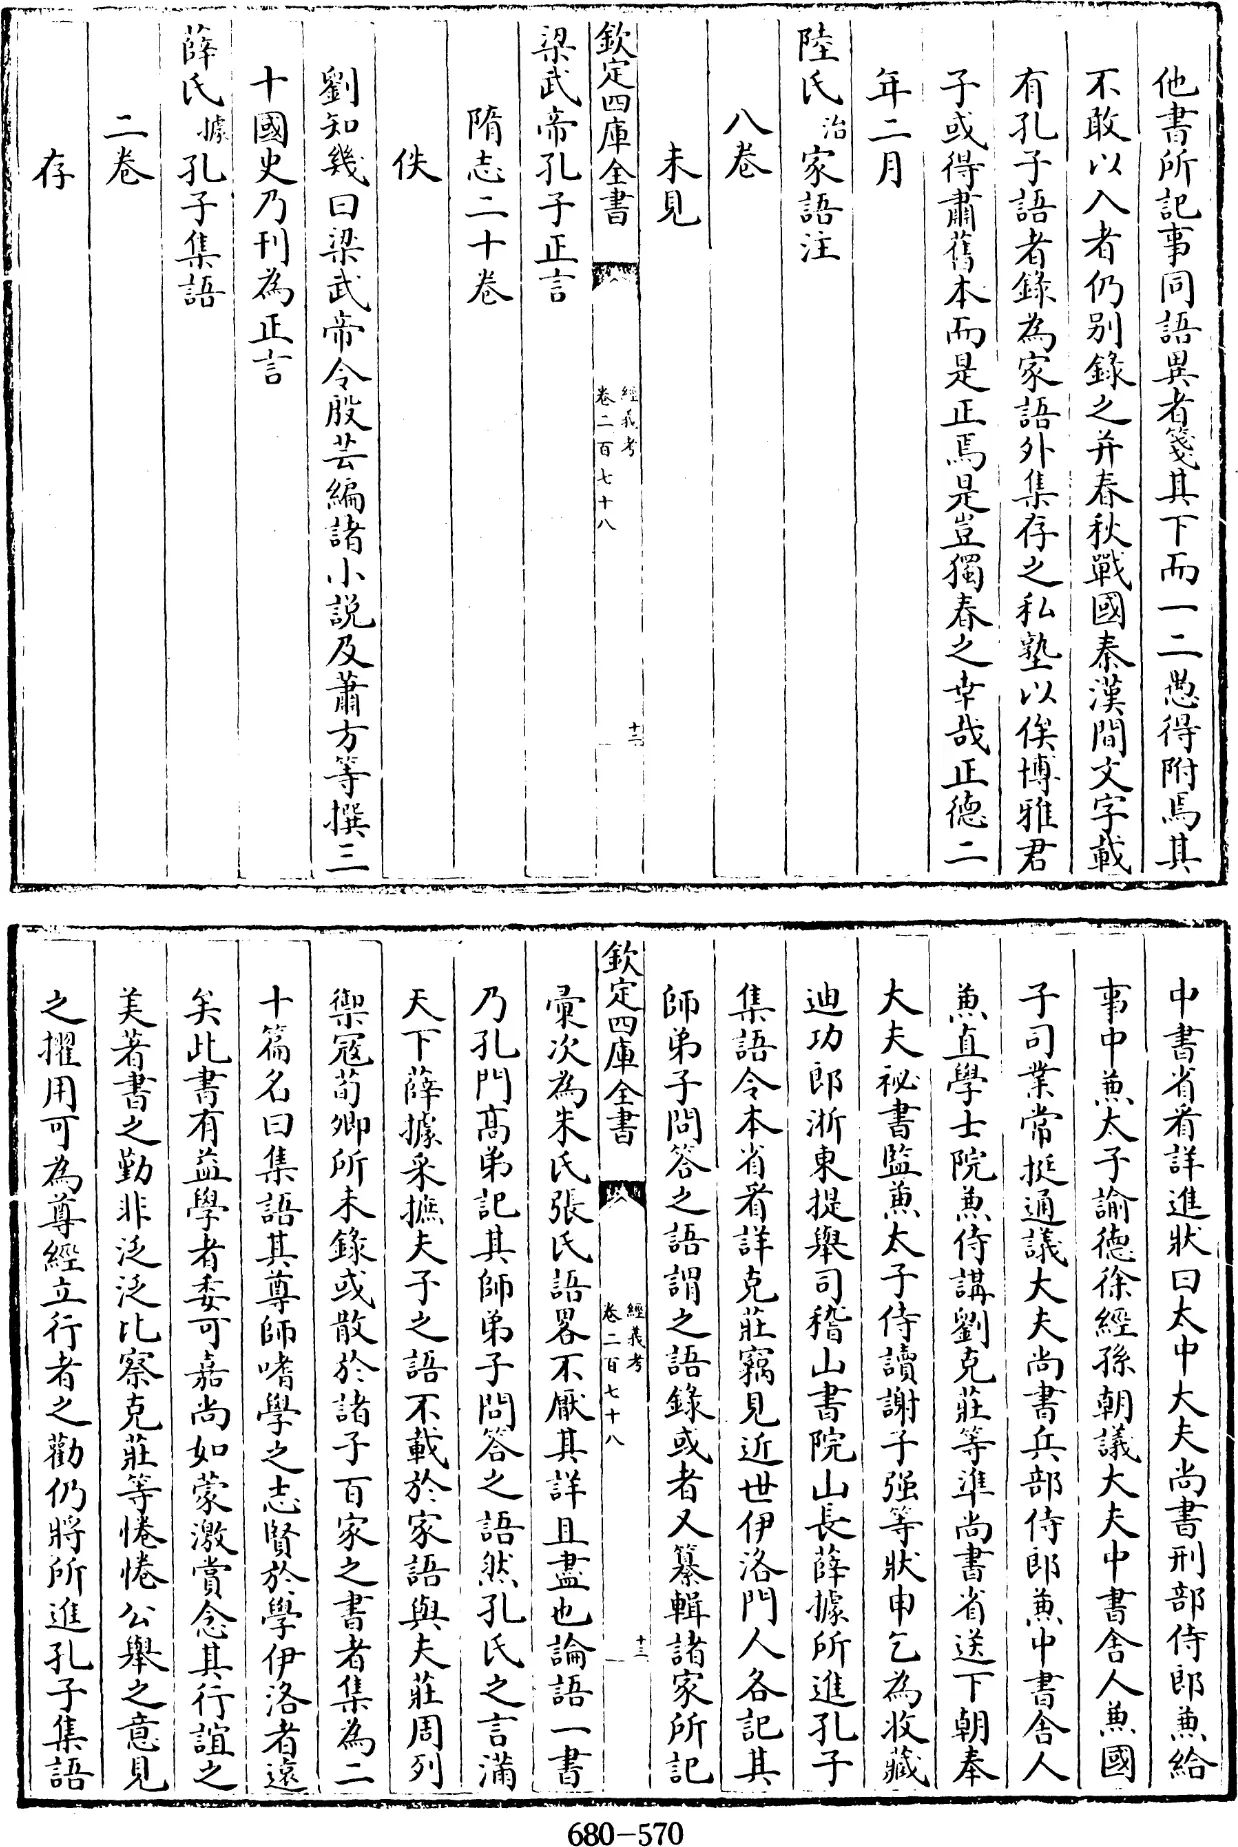 他書所記事同語異者箋其下而一二愚得附焉其
不敢以入者仍别錄之并春秋戰國秦漢間文字載
有孔子語者錄為家語外集存之私塾以俟博雅君
子或得肅舊本而是正焉是豈獨春之幸哉正德二
年二月
陸氏治家語注
八卷
未見
欽定四庫全書
經義考
卷二百七十八
十二
梁武帝孔子正言
隋志二十卷
佚
劉知幾曰梁武帝令殷芸編諸小説及蕭方等撰三
十國史乃刊為正言
薛氏據孔子集語
二卷
存
中書省看詳進狀曰太中大夫尚書刑部侍郎兼給
事中兼太子諭德徐經孫朝議大夫中書舍人兼國
子司業常挺通議大夫尚書兵部侍郎兼中書舍人
兼直學士院兼侍講劉克莊等準尚書省送下朝奉
大夫祕書監兼太子侍讀謝子强等狀申乞為收藏
迪功郎浙東提舉司稽山書院山長薛據所進孔子
集語令本省看詳克莊竊見近世伊洛門人各記其
師弟子問答之語謂之語錄或者又纂輯諸家所記
欽定四庫全書
經義考
卷二百七十八
十三
彚次為朱氏張氏語畧不厭其詳且盡也論語一書
乃孔門髙弟記其師弟子問答之語然孔氏之言滿
天下薛據采摭夫子之語不載於家語與夫莊周列
禦冦荀卿所未錄或散於諸子百家之書者集為二
十篇名曰集語其尊師嗜學之志賢於學伊洛者遠
矣此書有益學者委可嘉尚如蒙激賞念其行誼之
美著書之勤非泛泛比察克莊等惓惓公舉之意見
之擢用可為尊經立行者之勸仍將所進孔子集語
680-570